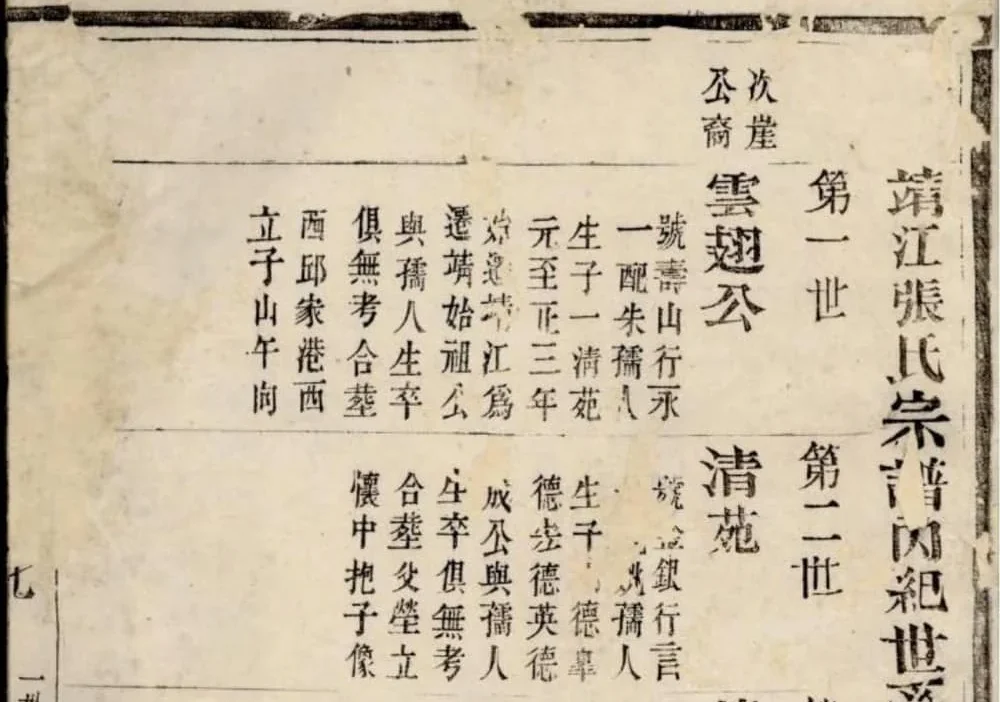 靖江張氏宗譜内紀世
第一世
第二世
次崖
公裔
雲翅公
號壽山行永
一配朱孺人
生子一清苑
元至正三年
始遷靖江爲
遷靖始祖公
與孺人生卒
俱無考合塟
西邱家港西
立子山午向
清苑
號金銀行言
孺人
生子 德皐
德宏德英德
成公與孺人
生卒俱無考
合塟父塋立
懷中抱子像
七